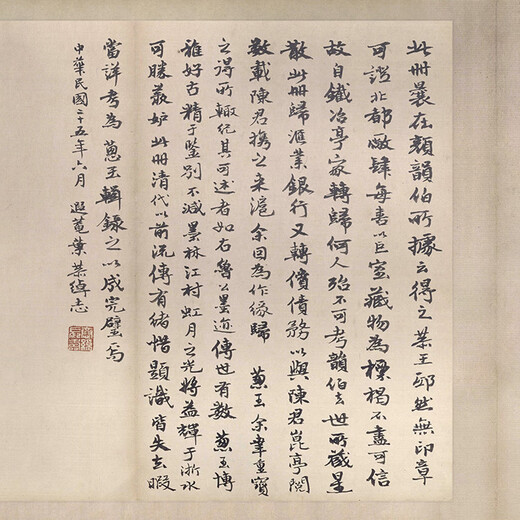 此冊曩在顏韻伯所據云得之某王邸然無印章
可證北都敝肆每喜以巨室藏物為標榜不盡可信
故自鐵冶亭家轉歸何人殆不可考韻伯去世所藏星
散此冊歸滙業銀行又轉償債務以與陳君崑亭閱
數載陳君攜之來滬余因為作緣歸 蔥玉余聿重寶
之得所輒紀其可述者如右魯公墨迹傳世有數蔥玉博
雅好古精于鑒別不減墨林江村虹月之光將益輝于浙水
可勝慕妒此冊清代以前流傳有緒惜題識皆失去暇
當詳考為蔥玉輯錄之以成完璧焉
中華民國二十五年六月 遐菴葉恭綽志